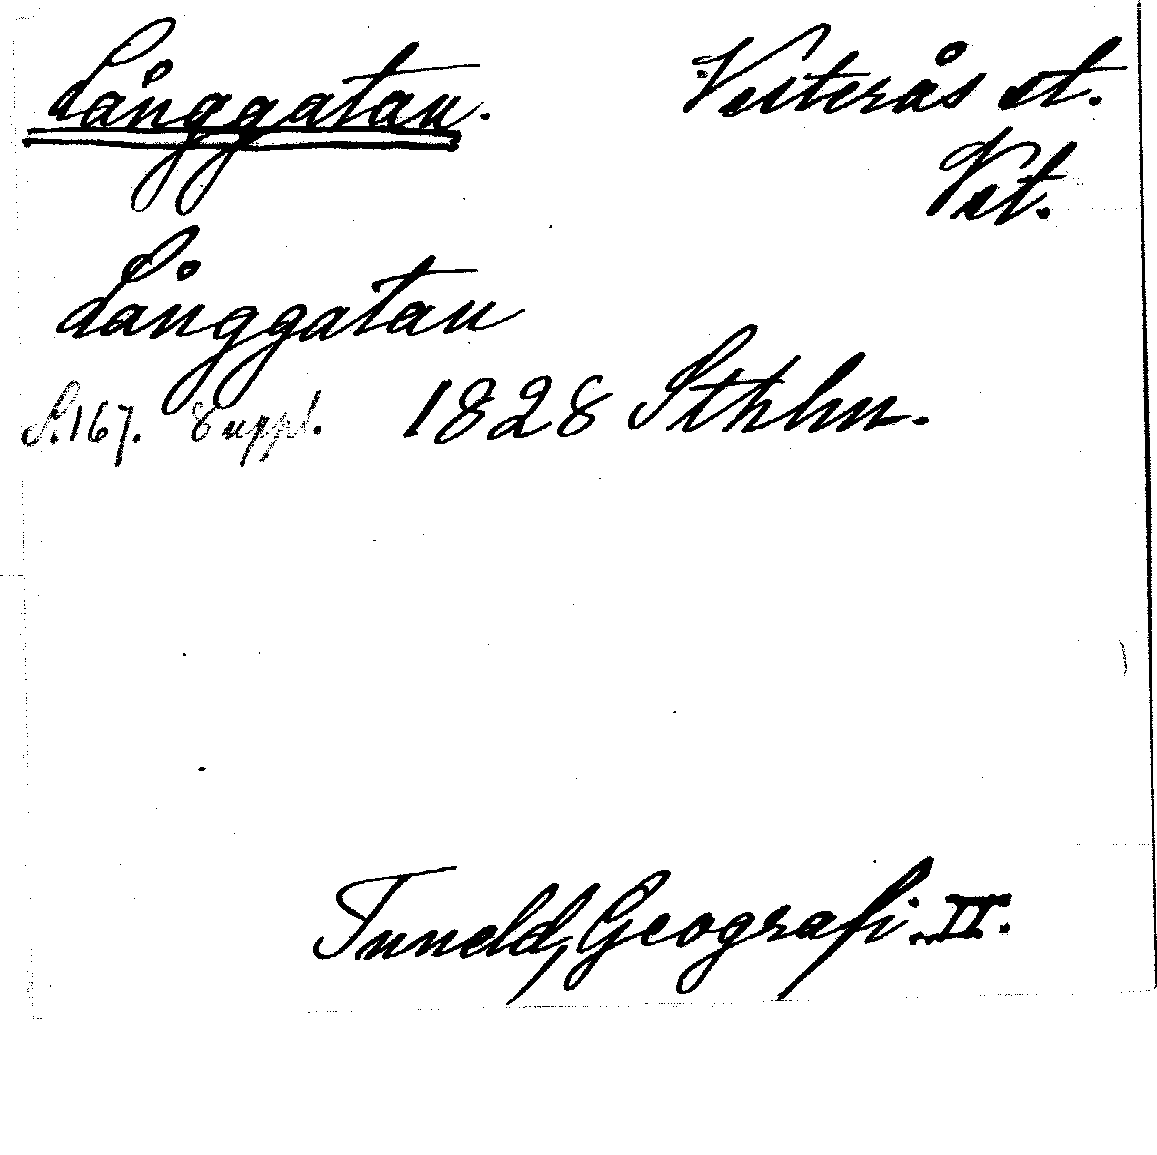 Långgatan. Västerås st.
Vst.
Långgatan
S. 167. Suppl. 1828 Sthlm.
Tuneld, Geografi. II.